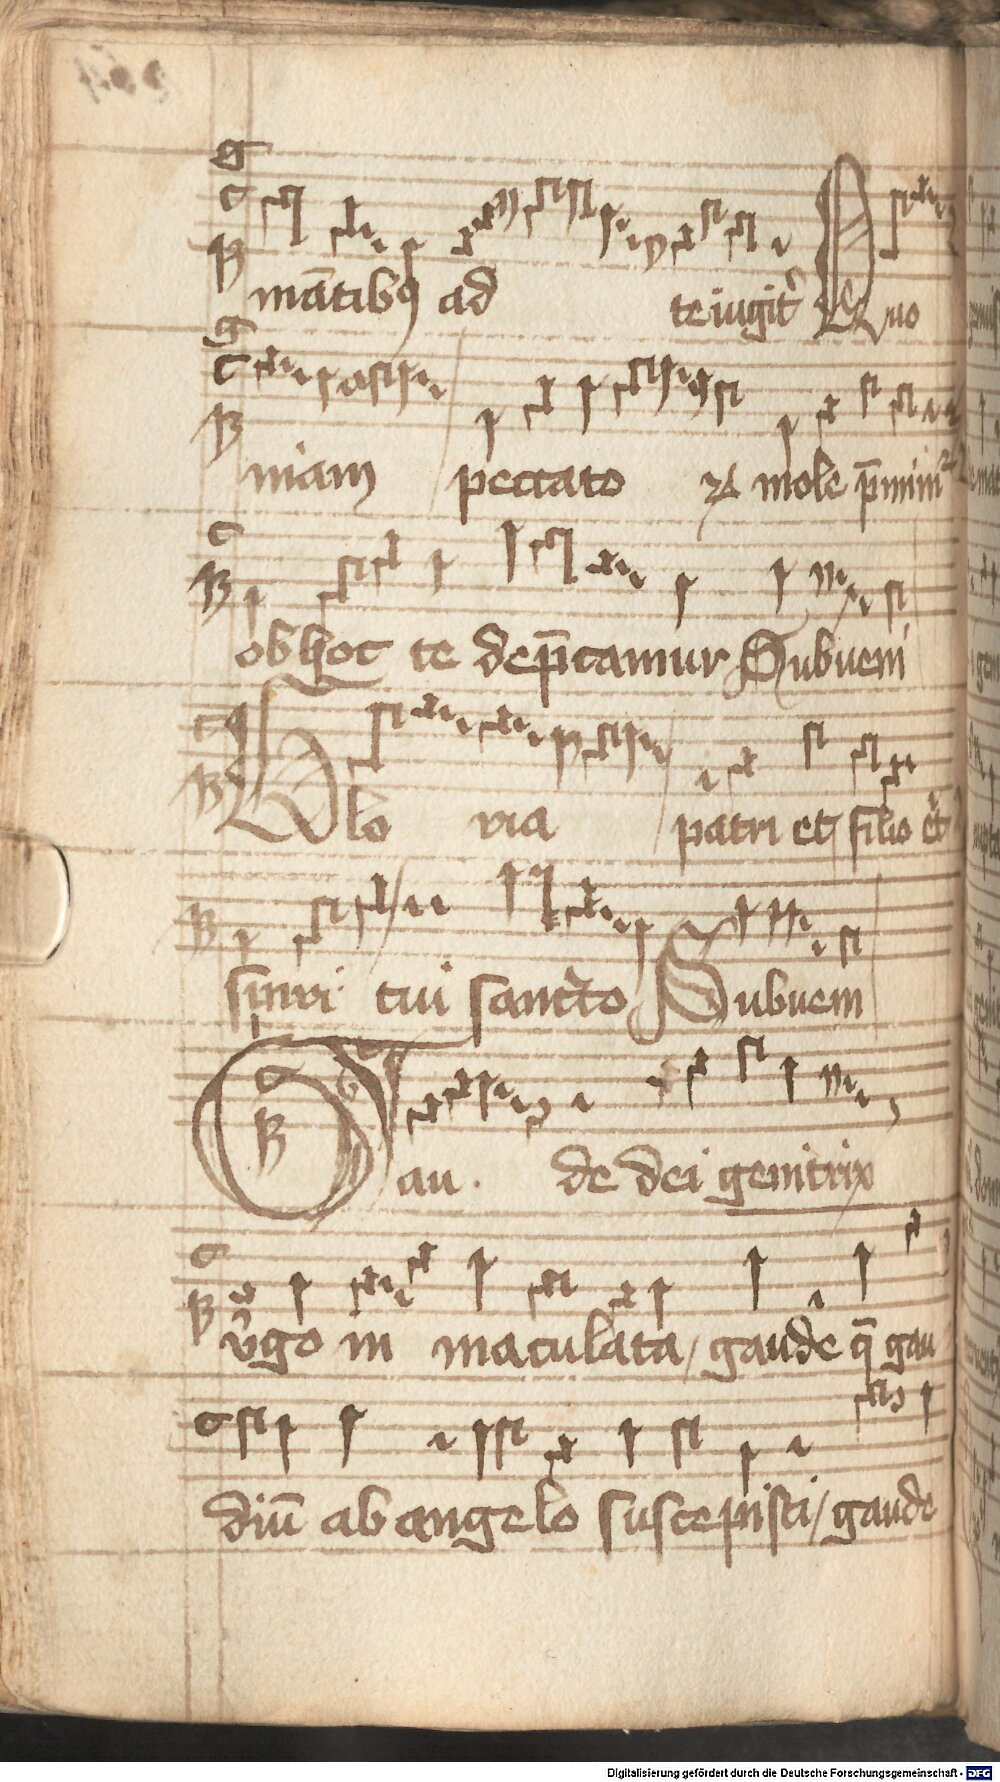 mātibꝰ ad te iugit᷑ Quo
niam peccato ꝝ mole p̄mim᷑
ob hoc te dep̄camur Subueni
Glo ria patri et filio et
spiri tui sancto Subueni
Gau de dei genitrix
v᷑go in maculata / gaude q̄ gau
diū ab angelo suscepisti / gaude
Digitalisierung gefördert durch die Deutsche Forschungsgemeinschaft - DFG